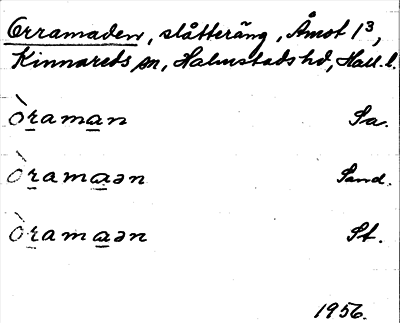 Orramaden, slåtteräng, Åmot 1³,
Kinnareds sn, Halmstads hd, Hall. l.
òraman Sa.
òramaən Sand.
òramaən St.
1956.